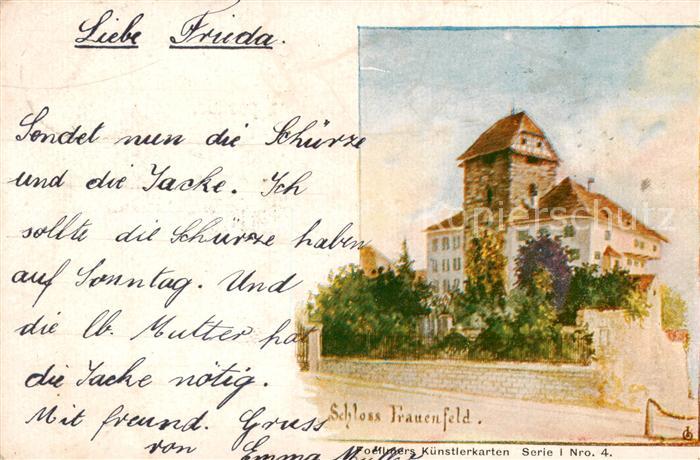 Liebe Frieda.
Sendet nun die Schürze
und die Jacke. Ich
sollte die Schurze haben
auf Sonntag. Und
die lb. Mutter hat
die Jacke nötig.
Mit freund. Gruss
von Emma Müller
Schloss Frauenfeld.
Foellmers Künstlerkarten Serie I Nro. 4.
papierschutz